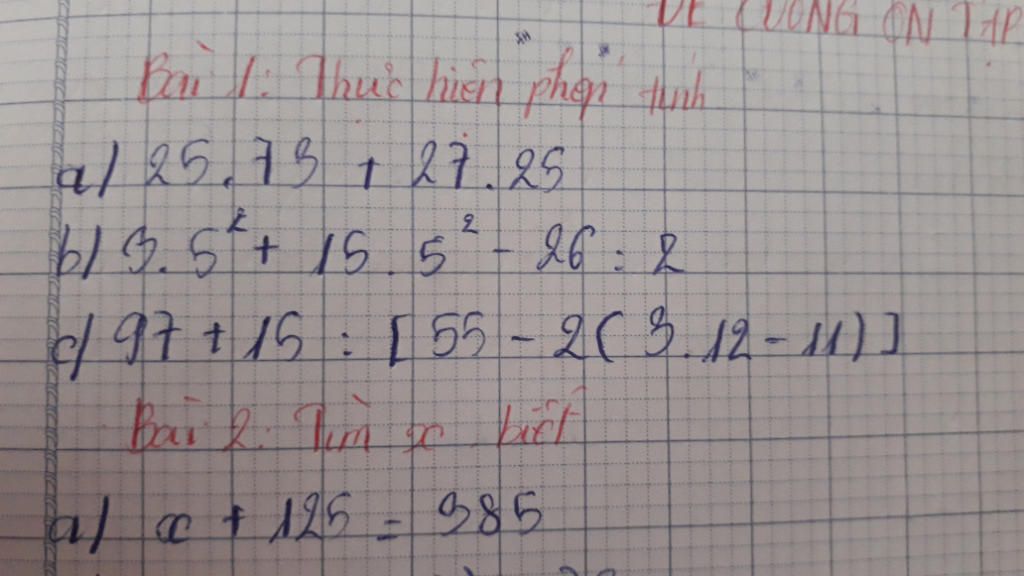 ĐỀ CƯƠNG ÔN TẬP
Bài 1: Thực hiện phép tính
a) 25.73 + 27.25
b) 3.5² + 15.5² - 26 : 2
c) 97 + 15 : [55 - 2(3.12 - 11)]
Bài 2: Tìm x biết
a) x + 125 = 385